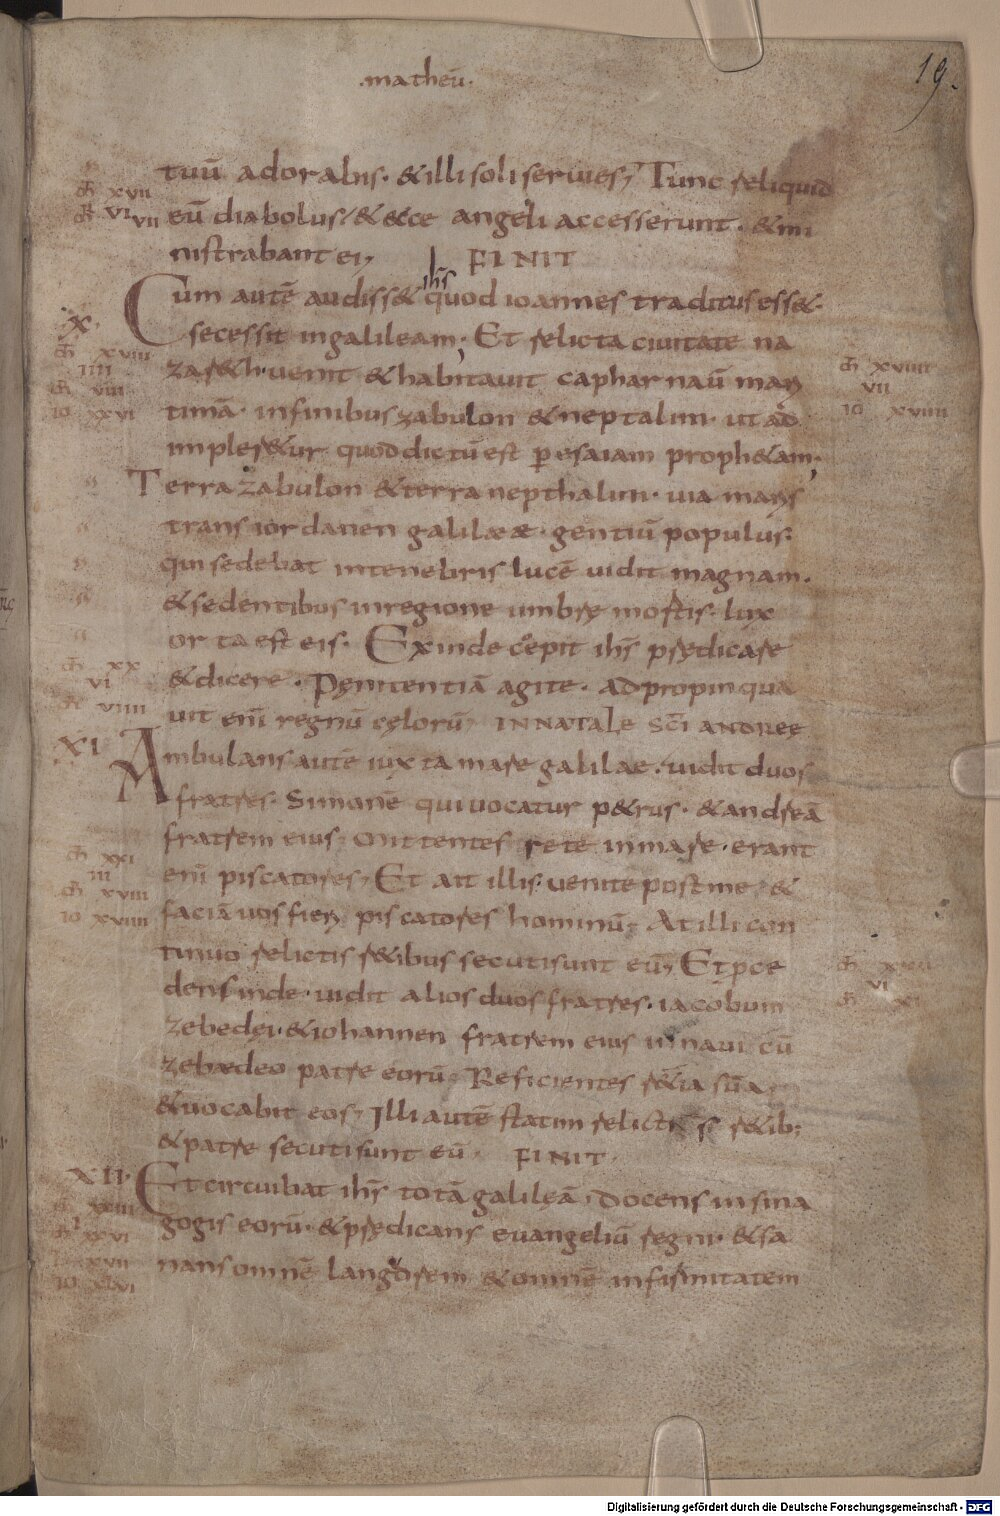 .matheū.
19.
tuū adorabis. & illi soli servies, Tunc reliquid
m̄ xvii
eū diabolus. & ecce angeli accesserunt. & mi
vi vii
nistrabant ei, FINIT
ihs
Cum autē audiss& quod ioannes traditus ess&.
X.
secessit in galileam. Et relicta civitate na
xviii
zar&h. venit & habitavit capharnaū mari
iiii
viii
xviiii
vii
timā. in finibus zabulon & neptalim. ut ad
io xxvi
io xviiii
impler&ur quod dictū est p esaiam proph&am.
Terra zabulon & terra nepthalim. via maris
trans iordanen galilææ. gentiū populus.
qui sedebat in tenebris lucē vidit magnam.
& sedentibus in regione umbrę mortis. lux
orta est eis. Exinde cepit ihs prędicare
xx
& dicere. Pęnitentiā agite. Adpropinqua
vi
viiii
vit eni regnū cęlorū, IN NATALE SCI ANDREE
XI
Ambulans autē iuxta mare galilae. vidit duos
fratres. Simonē qui vocatur p&rus. & andreā
fratrem eius. Mittentes rete in mare. erant
xxi
iii
eni piscatores, Et ait illis. venite post me, &
xviii
faciā vos fieri piscatores hominū, At illi con
io xviiii
tinuo relictis r&ibus secuti sunt eū, Et pce
dens inde. vidit alios duos fratres. iacobum
vi
xi
zebedęi. & iohannen fratrem eius in navi cū
zebedeo patre eorū, Reficientes r&ia sua,
& vocabit eos, Illi autē statim relictis r&ib;
& patre secuti sunt eū. FINIT.
XII.
Et circuibat ihs totā galileā, docens in sina
xxiii
i
gogis eorū. & prędicans evangeliū regni. & sa
xxvi
xxvii
nans omnē langorem & omnē infirmitatem
io xlvi
Digitalisierung gefördert durch die Deutsche Forschungsgemeinschaft - DFG